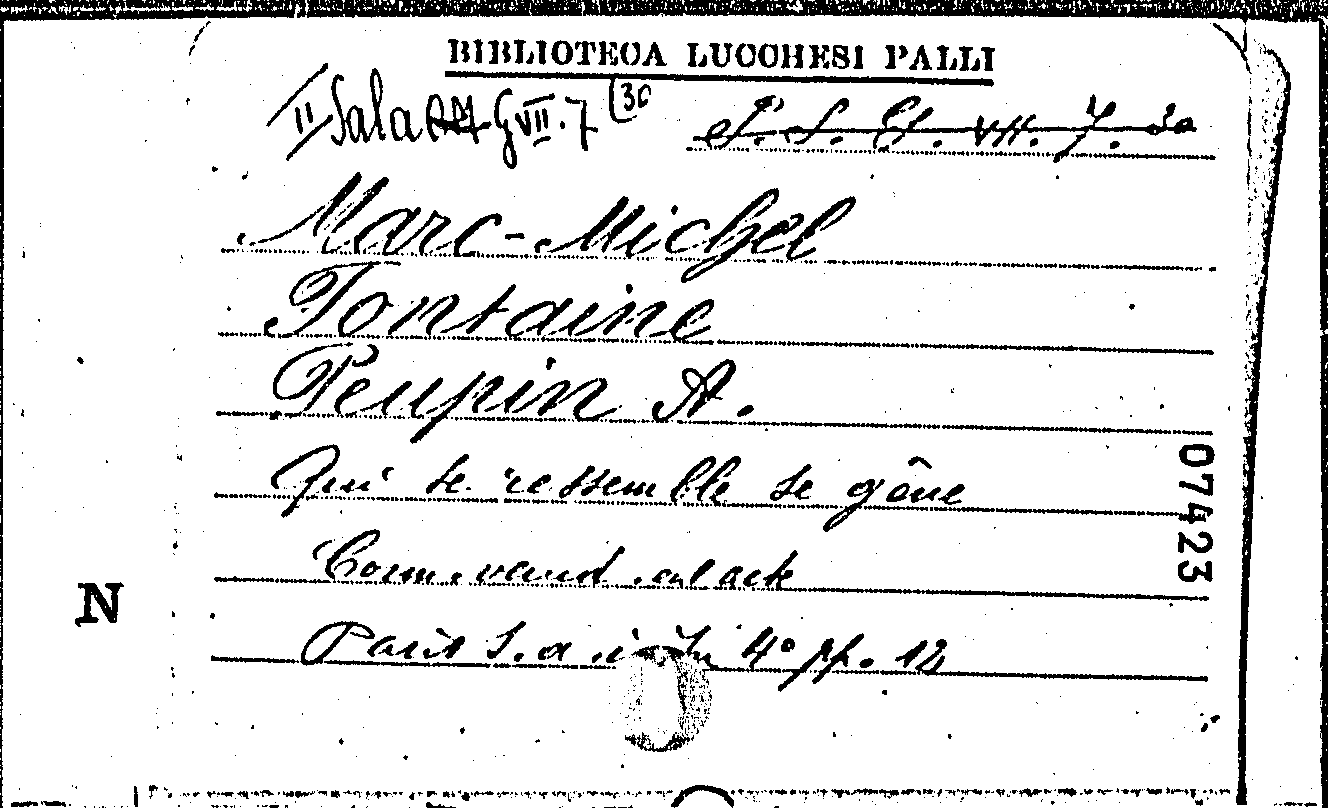 BIBLIOTECA LUCCHESI PALLI
II Sala G VII. 7 (30
P. S. G. VII. 7. 30
Marc-Michel
Fontaine
Peupin A.
Qui se ressemble se gêne
Com. vaud. al acte
Paris S. a. in 4° pp. 12
07423
N